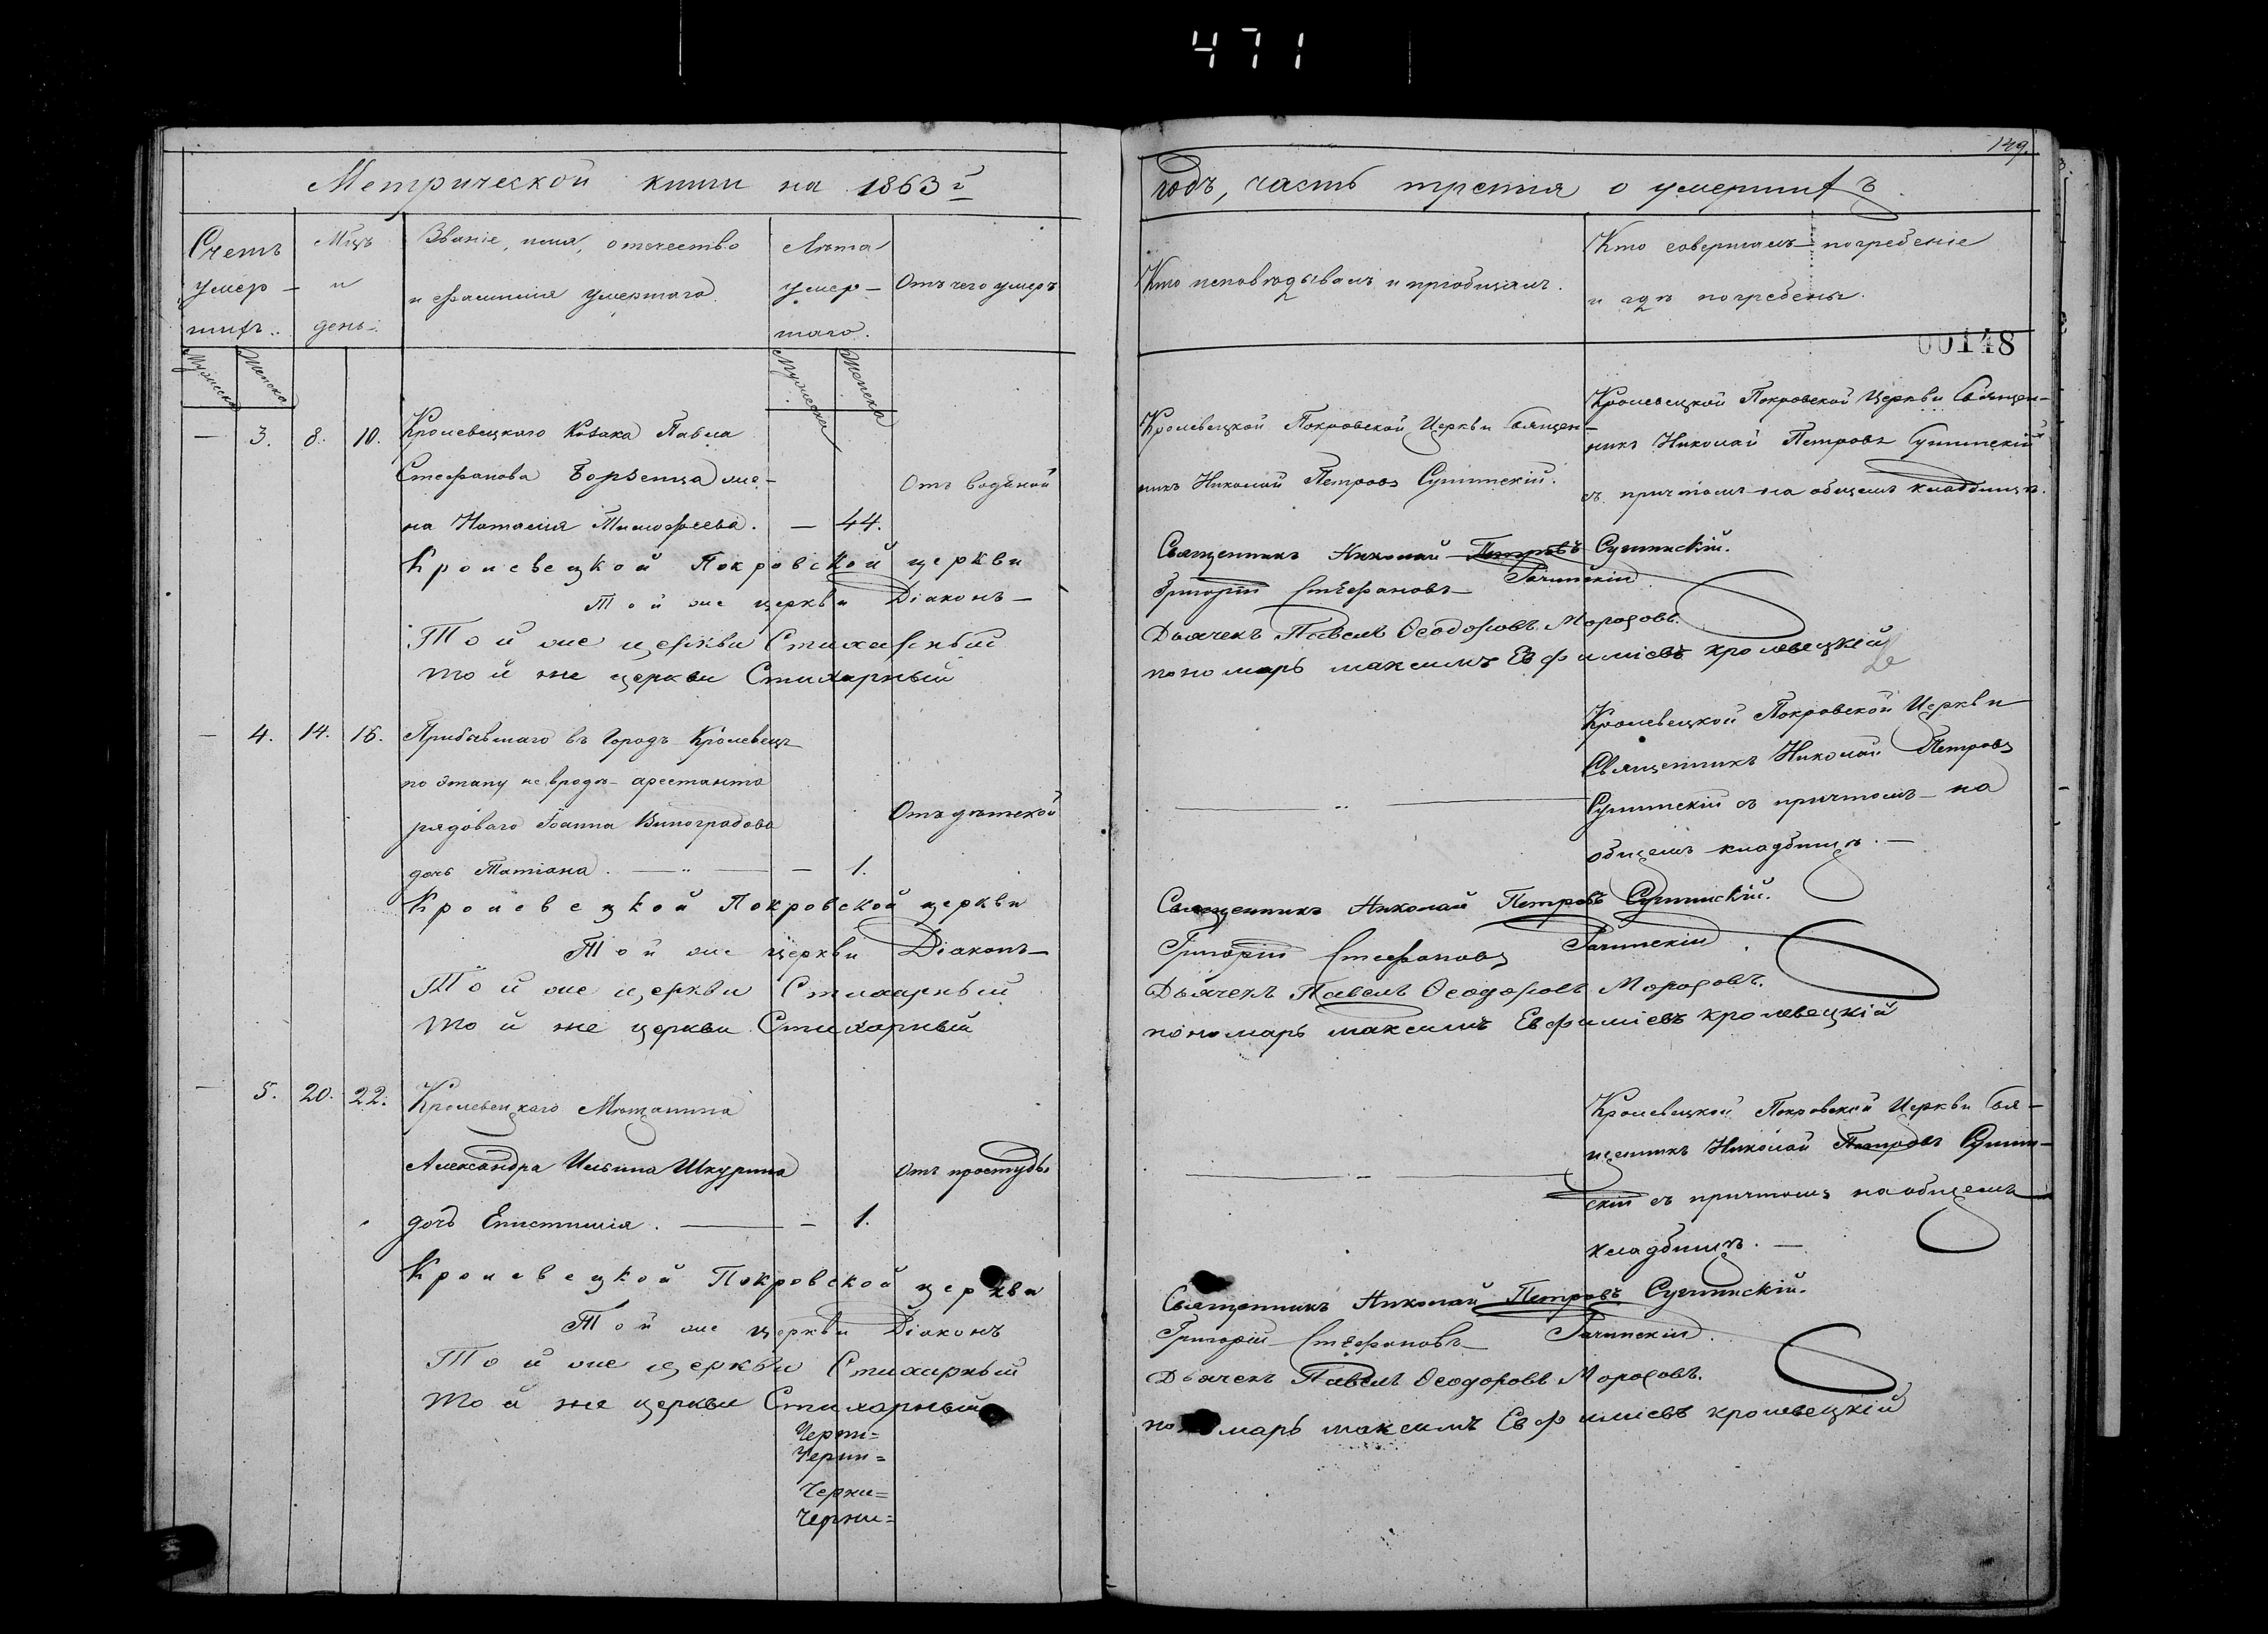 471
149.
Метрической книги на 1863й
годъ, часть третія о умершихъ.
Счетъ
умер-
шихъ.
Мцъ
и
день.
Званіе, имя, отчество
и фамилія умершаго.
Лѣта
умер-
шаго.
Отъ чего умеръ
Кто исповѣдывалъ и пріобщалъ.
Кто совершалъ погребеніе
и гдѣ погребены.
00148
Мужеска
Женска
Мужеска
Женска
— 3. 8. 10. Кролевецкаго Козака Павла
Стефанова Борзенца же-
на Наталія Тимофеева. — 44.
Отъ водяной
Кролевецкой Покровской Церкви Священ-
никъ Николай Петровъ Сушинскій.
Кролевецкой Покровской Церкви Священ-
никъ Николай Петровъ Сушинскій
съ причтомъ на общемъ кладбищѣ.
Кролевецкой Покровской церкви Священникъ Николай Петровъ Сушинскій.
Той же церкви Діаконъ Григорій Стефановъ Гачинскій
Той же церкви Стихарный Дьячекъ Павелъ Ѳеодоровъ Морозовъ.
той же церкви Стихарный пономарь максимъ Евфиміевъ кролевецкій
— 4. 14. 16. Прибывшаго въ Городъ Кролевецъ
по этапу невродѣ арестанта
рядоваго Іоанна Виноградова
дочь Татіана. — — 1.
Отъ дѣтской
Кролевецкой Покровской Церкви
Священникъ Николай Петровъ
Сушинскій съ причтомъ на
общемъ кладбищѣ. —
Кролевецкой Покровской церкви Священникъ Николай Петровъ Сушинскій.
Той же церкви Діаконъ Григорій Стефановъ Гачинскій.
Той же церкви Стихарный Дьячекъ Павелъ Ѳеодоровъ Морозовъ.
той же церкви Стихарный пономарь максимъ Евфиміевъ кролевецкій
— 5. 20. 22. Кролевецкаго Мѣщанина
Александра Ильина Шкурина
дочь Епистимія. — — 1.
Отъ простуды
Кролевецкой Покровской Церкви Свя-
щенникъ Николай Петровъ Сушин-
скій съ причтомъ на общемъ
кладбищѣ. —
Кролевецкой Покровской церкви Священникъ Николай Петровъ Сушинскій.
Той же церкви Діаконъ Григорій Стефановъ Гачинскій.
Той же церкви Стихарный Дьячекъ Павелъ Ѳеодоровъ Морозовъ.
той же церкви Стихарный пономарь максимъ Евфиміевъ кролевецкій
Черни=
Черни=
Черни=
Черни=